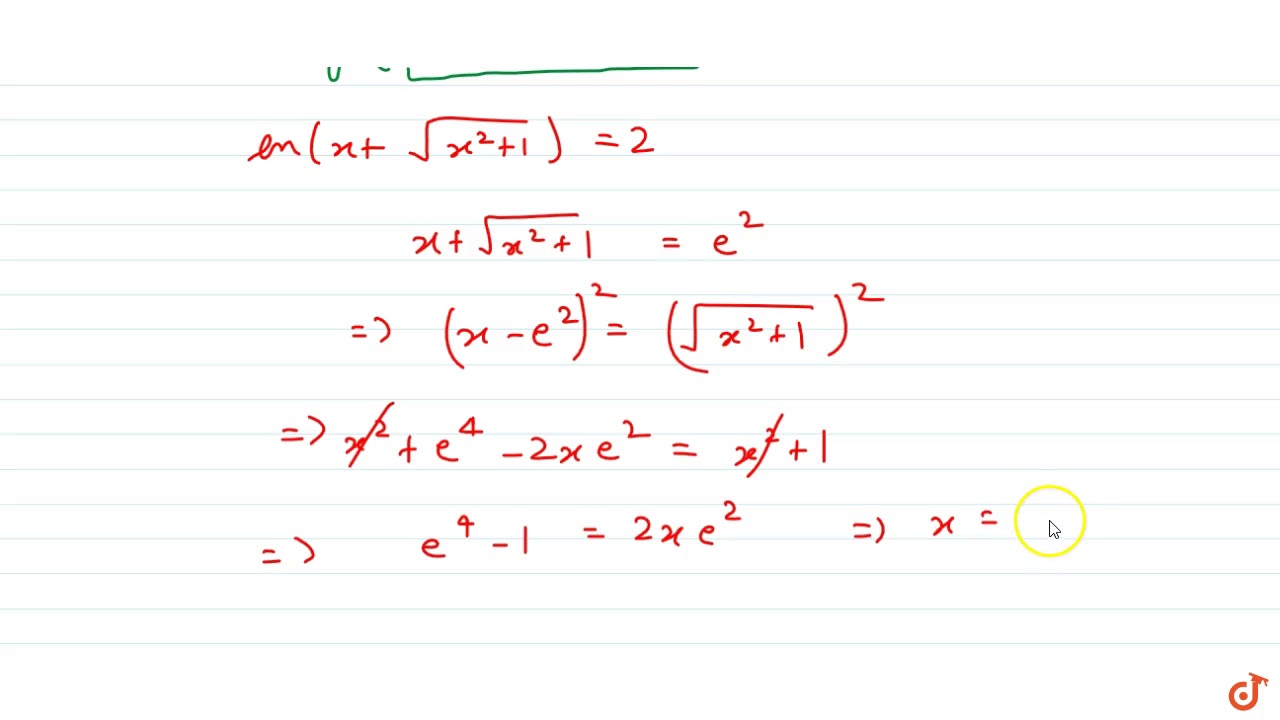 ln(x + √(x²+1)) = 2
x + √(x²+1) = e²
=> (x - e²)² = (√(x²+1))²
=> x² + e⁴ - 2xe² = x² + 1
=> e⁴ - 1 = 2xe² => x =